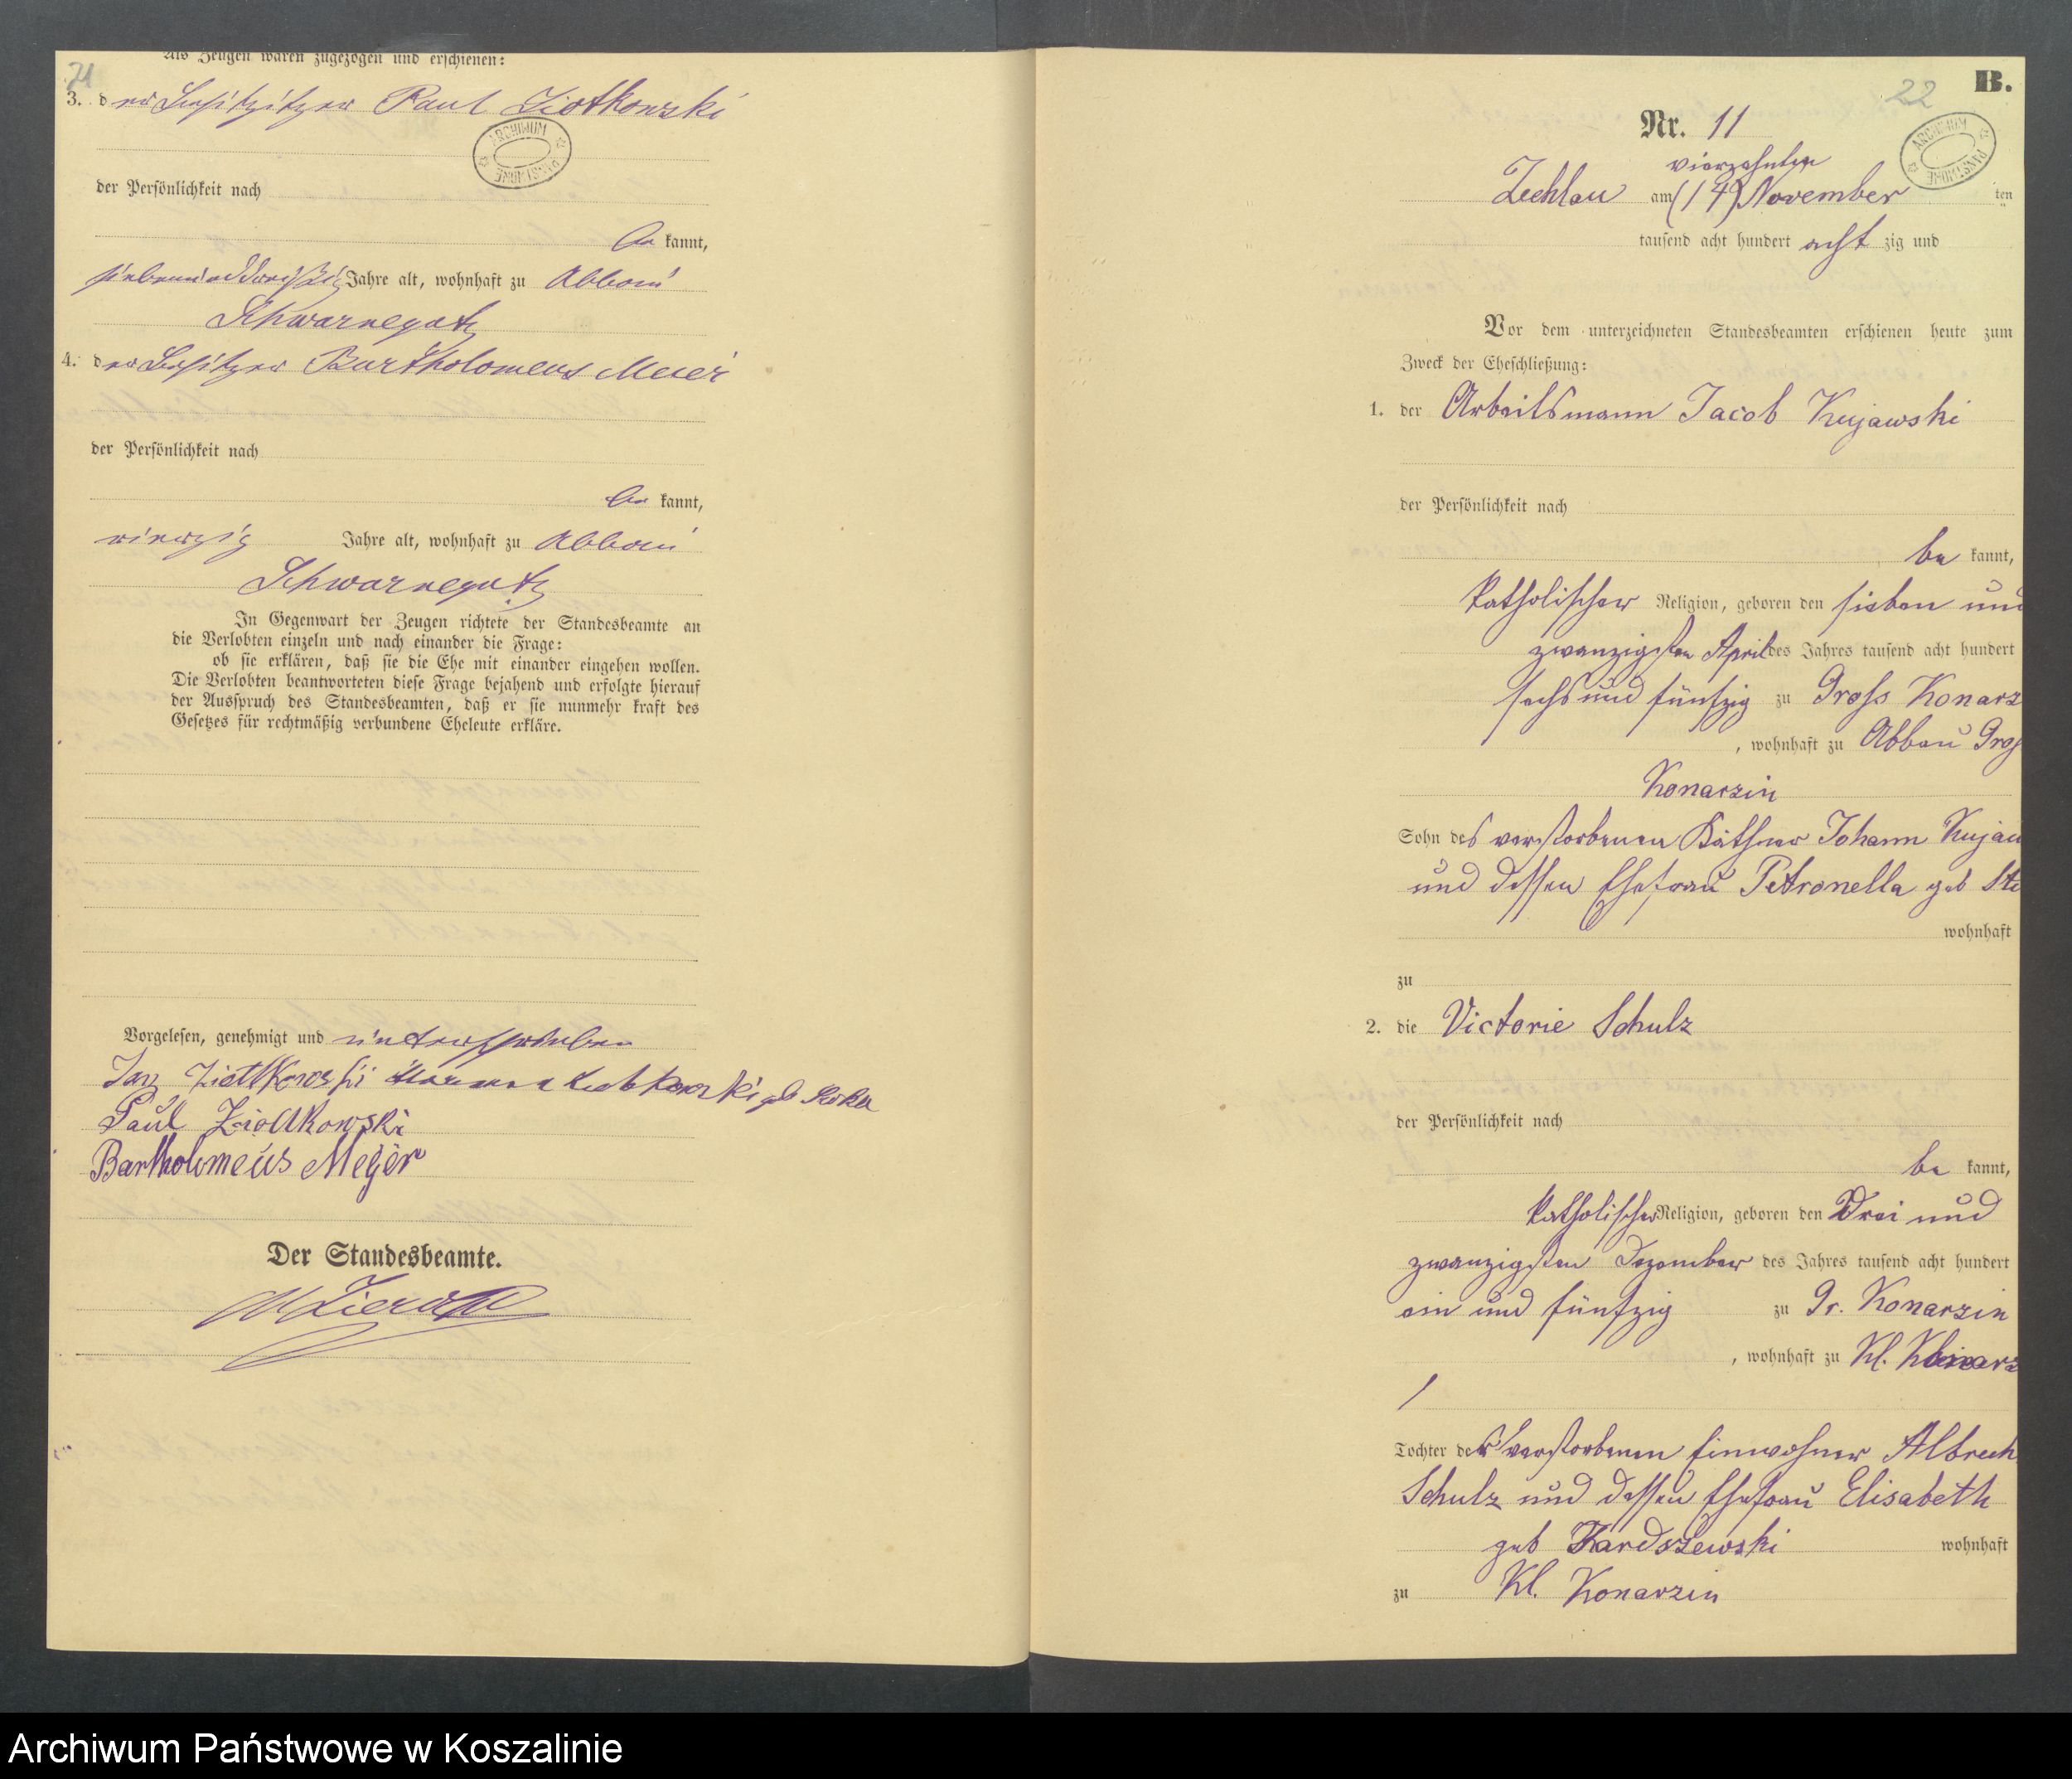 21
Als Zeugen waren zugezogen und erschienen:
3. der Besitzer Paul Ziotkowski
ARCHIWUM PAŃSTWOWE
der Persönlichkeit nach
be kannt,
siebenunddreißig Jahre alt, wohnhaft zu Abbau
Schwarnegatz
4. der Besitzer Bartholomeus Meier
der Persönlichkeit nach
be kannt,
vierzig Jahre alt, wohnhaft zu Abbau
Schwarnegatz
In Gegenwart der Zeugen richtete der Standesbeamte an
die Verlobten einzeln und nach einander die Frage:
ob sie erklären, daß sie die Ehe mit einander eingehen wollen.
Die Verlobten beantworteten diese Frage bejahend und erfolgte hierauf
der Ausspruch des Standesbeamten, daß er sie nunmehr kraft des
Gesetzes für rechtmäßig verbundene Eheleute erkläre.
Vorgelesen, genehmigt und unterschrieben
Jan Ziottkowski
Paul Ziolkowski
Bartholomeus Meyer
Der Standesbeamte.
22
B.
Nr. 11
ARCHIWUM PAŃSTWOWE
vierzehnten
Zechlau am (14) November ten
tausend acht hundert acht zig und
Vor dem unterzeichneten Standesbeamten erschienen heute zum
Zweck der Eheschließung:
1. der Arbeitsmann Jacob Kujawski
der Persönlichkeit nach
be kannt,
katholischer Religion, geboren den sieben und
zwanzigsten April des Jahres tausend acht hundert
sechs und fünfzig zu Gross Konarz
, wohnhaft zu Abbau Gros
Konarzin
Sohn des verstorbenen Käthner Johann Kujaw
und dessen Ehefrau Petronella geb Ste
wohnhaft
zu
2. die Victorie Schulz
der Persönlichkeit nach
be kannt,
katholischer Religion, geboren den Drei und
zwanzigsten Dezember des Jahres tausend acht hundert
ein und fünfzig zu Gr. Konarzin
, wohnhaft zu Kl. Konarz
Tochter des verstorbenen Einwohner Albrech
Schulz und dessen Ehefrau Elisabeth
geb Kardszewski wohnhaft
zu Kl. Konarzin
Archiwum Państwowe w Koszalinie